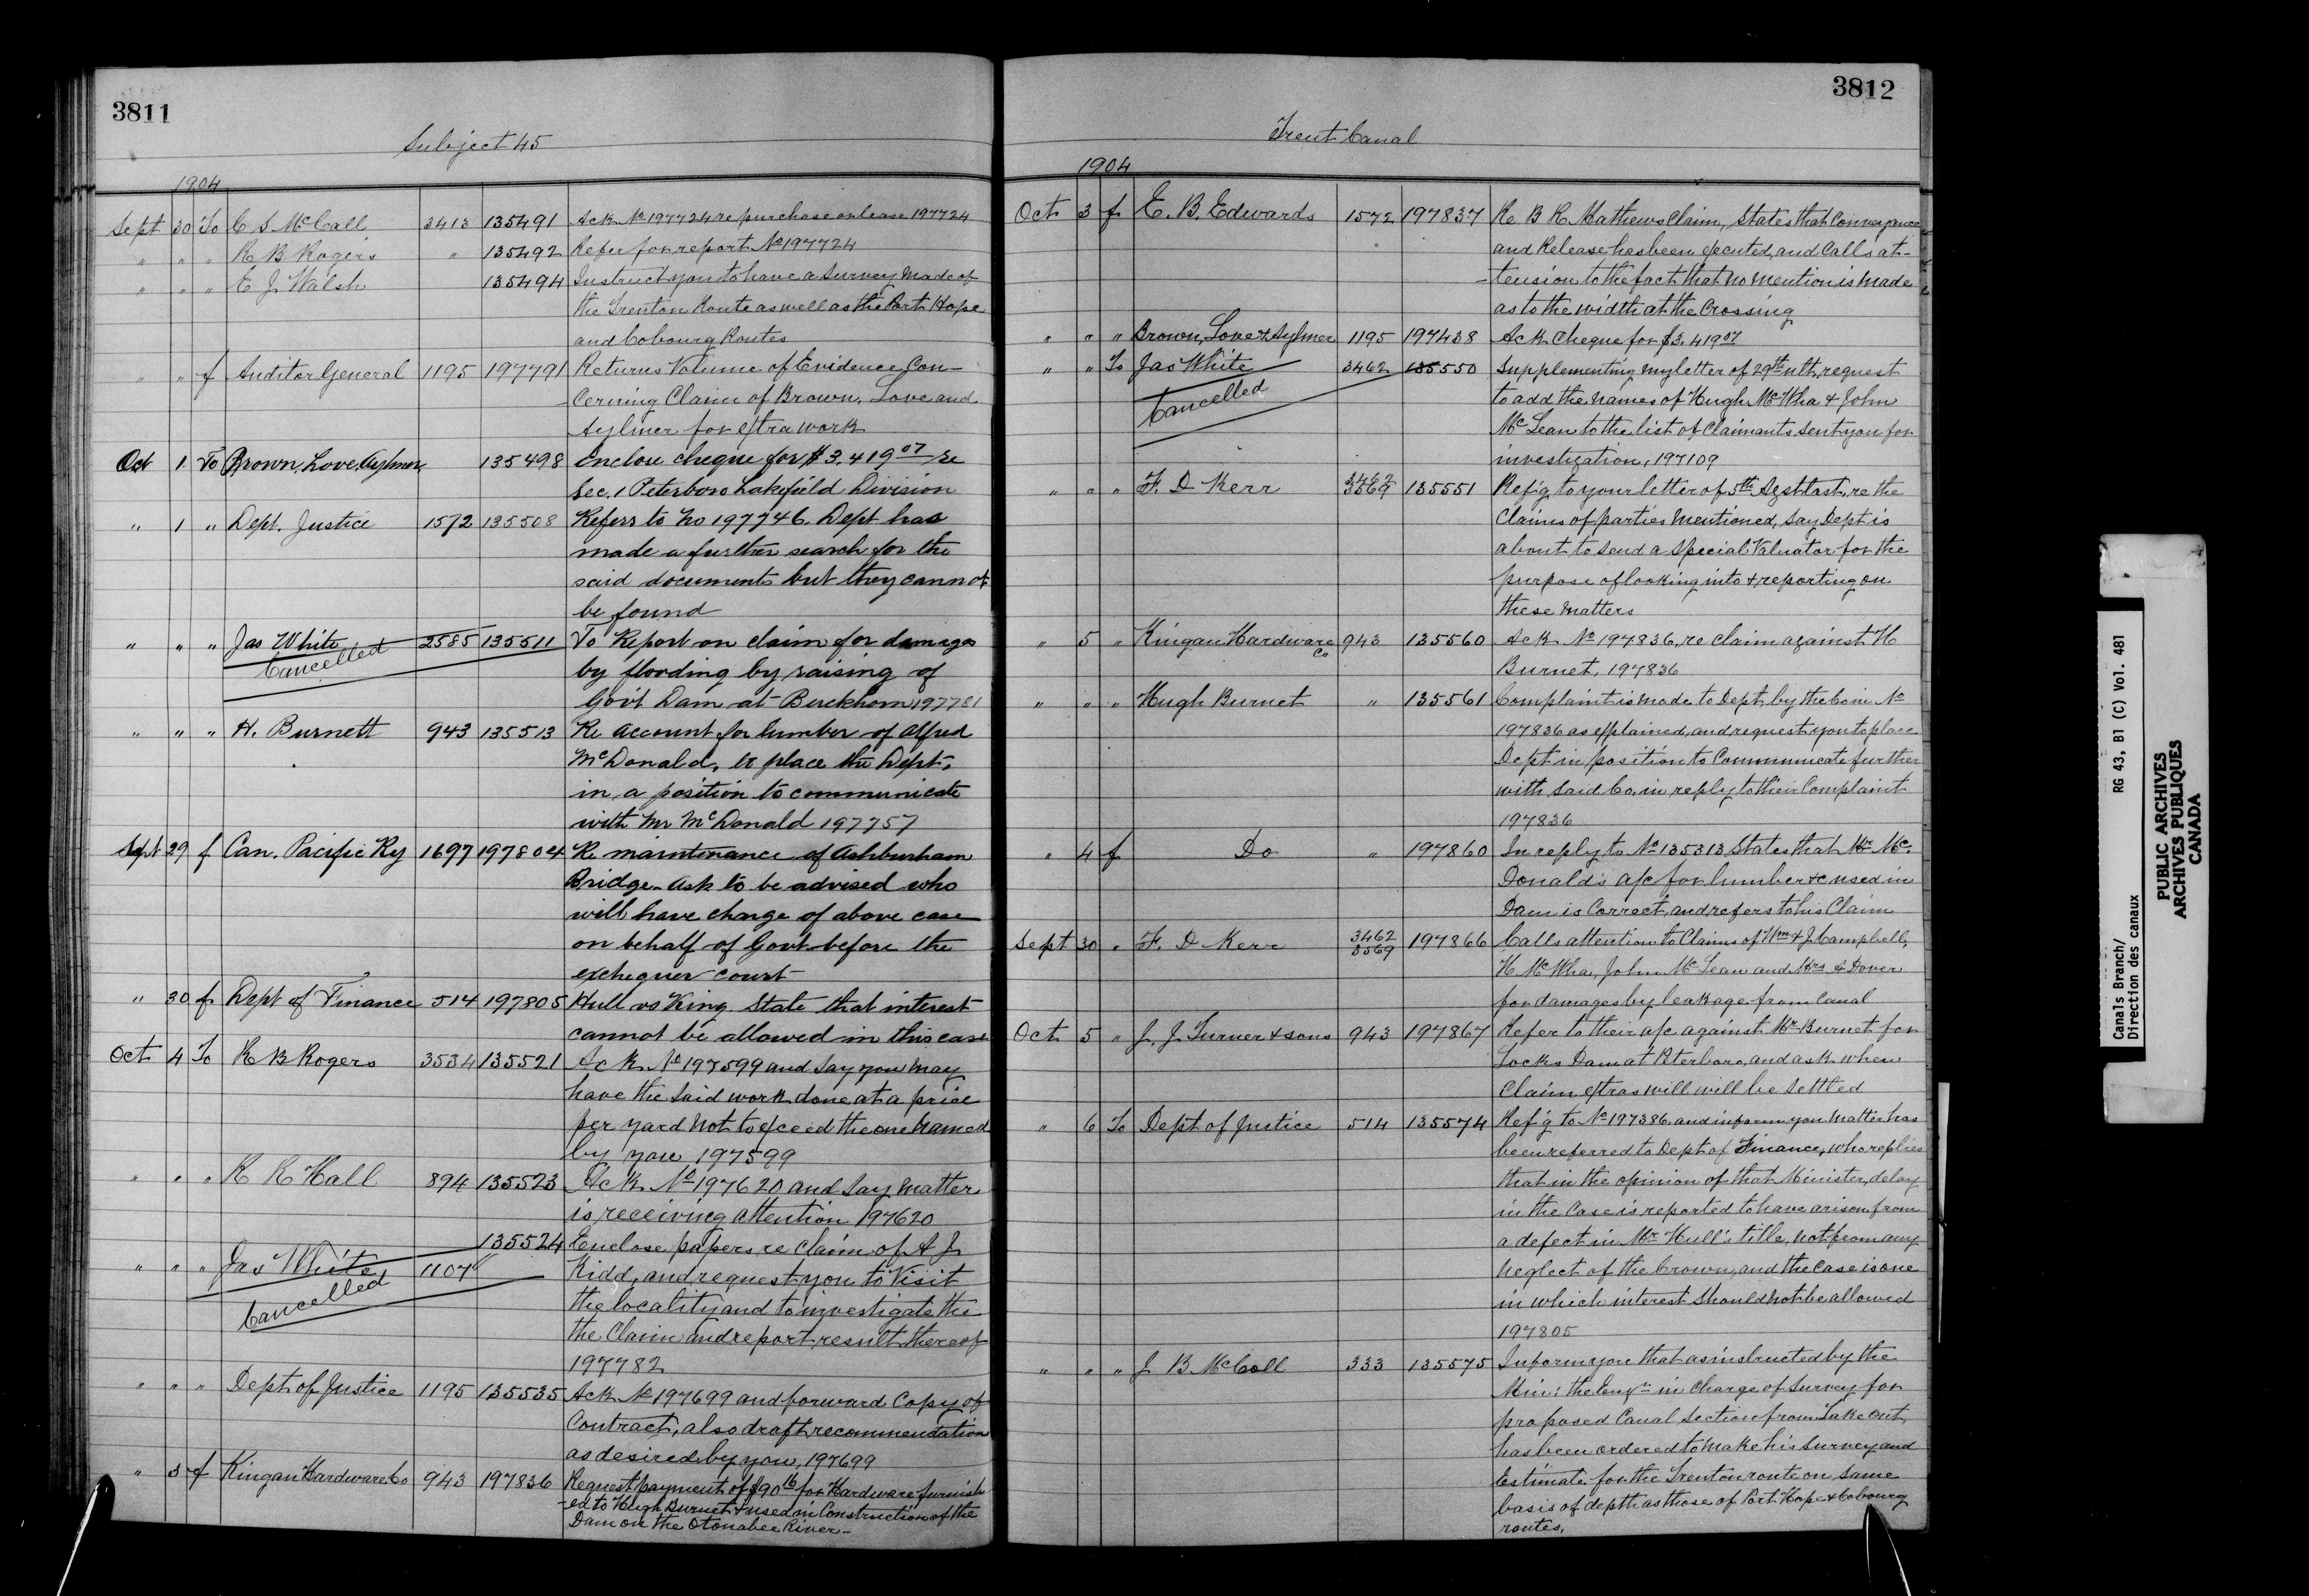 3811
Subject 45
1904
Sept 30 To C S McCall 3413 135491 Ack No 197724 re purchase or lease 197724
" " " R B Rogers " 135492 Refer for report No 197724
" " " E J Walsh 135494 Instruct you to have a Survey made of
the Trenton Route as well as the Port Hope
and Cobourg Routes
" " f Auditor General 1195 197791 Returns Volume of Evidence Con-
cerning Claim of Brown, Love and
Aylmer for extra work
Oct 1 To Brown, Love, Aylmer 135498 Enclose cheque for $3,419 07 re
Sec. 1 Peterboro Lakefield Division
" 1 " Dept. Justice 1572 135508 Refers to No 197746. Dept has
made a further search for the
said documents but they cannot
be found
" " " Jas White 2585 135511 To Report on claim for damages
Cancelled by flooding by raising of
Gov't Dam at Buckhorn 197781
" " " H. Burnett 943 135513 Re account for lumber of Alfred
McDonald, to place the Dept,
in a position to communicate
with Mr McDonald 197757
Sept 29 f Can. Pacific Ry 1697 197804 Re maintenance of Ashburham
Bridge - Ask to be advised who
will have charge of above case
on behalf of Govt before the
exchequer court
" 30 f Dept of Finance 514 197805 Hull vs King. State that interest
cannot be allowed in this case
Oct 4 To R B Rogers 3534 135521 Ack No 197599 and say you may
have the said work done at a price
per yard not to exceed the one named
by you 197599
" " " R R Hall 894 135523 Ack No 197620 and say matter
is receiving attention 197620
135524 Enclose papers re claim of A J
" " " Jas White 1107 Kidd, and request you to Visit
Cancelled the locality and to investigate the
the Claim and report result thereof
197782
" " " Dept of Justice 1195 135535 Ack No 197699 and forward Copy of
Contract, also draft recommendation
as desired by you, 197699
" 3 f Kingan Hardware Co 943 197836 Request payment of $90 16 for Hardware furnish
-ed to Hugh Burnet & used in Construction of the
Dam on the Otonabee River -
3812
Trent Canal
1904
Oct 3 f E. B. Edwards 1572 197837 Re B R Mathews Claim, States that Conveyance
and Release has been executed, and Calls at-
-tension to the fact that no mention is made
as to the width at the Crossing
" " " Brown, Love & Aylmer 1195 197438 Ack Cheque for $3,419 07
" " To Jas White 3462 135550 Supplementing my letter of 29th ulth, request
Cancelled to add the names of Hugh McWha & John
McLean to the list of Claimants sent you for
investigation, 197109
" " " F. D Kerr 3462 3569 135551 Ref'g to your letter of 5th Agst last, re the
Claims of parties mentioned, say Dept is
about to send a Special Valuator for the
purpose of looking into & reporting on
these matters
" 5 " Kingan Hardware Co 943 135560 Ack No 197836, re claim against H
Burnet, 197836
" " " Hugh Burnet " 135561 Complaint is made to Dept, by the Com No
197836 as explained, and request you to place
Dept in position to Communicate further
with said Co, in reply to their Complaint
197836
" 4 f Do " 197860 In reply to No 135313 States that Mr Mc.
Donald's a/c for lumber &c used in
Dam is Correct, and refers to his Claim
Sept 30 " F. D Kerr 3462 3569 197866 Calls attention to Claims of Wm & J. Campbell,
H McWha, John McLean and Mrs A Dover
for damages by leakage from Canal
Oct 5 " J. J. Turner & sons 943 197867 Refer to their a/c against Mr Burnet for
Locks Dam at Peterboro, and ask when
Claim extras will will be settled
" 6 To Dept of Justice 514 135574 Ref'g to No 197386 and inform you matter has
been referred to Dept of Finance, who replies
that in the opinion of that Minister, delay
in the Case is reported to have arisen from
a defect in Mr Hull's title, not from any
neglect of the Crown, and the case is one
in which interest should not be allowed
197805
" " " J B McColl 333 135575 Inform you that as instructed by the
Min: the Engr in Charge of Survey for
proposed Canal section from Lake Ont,
has been ordered to make his survey and
Estimate for the Trenton route on same
basis of depth as those of Port Hope & Cobourg
routes.
Canals Branch/ RG 43, B1 (C) Vol. 481
Direction des canaux
PUBLIC ARCHIVES
ARCHIVES PUBLIQUES
CANADA